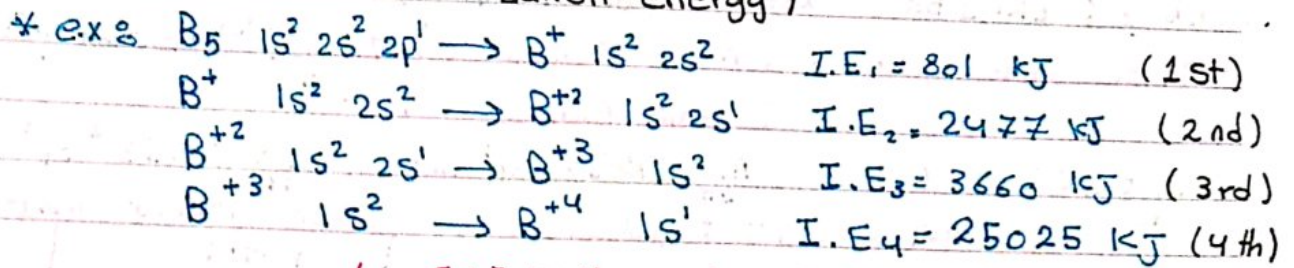 Energy)
* e.x: B₅ 1s² 2s² 2p¹ → B⁺ 1s² 2s² I.E₁ = 801 kJ (1st)
B⁺ 1s² 2s² → B⁺² 1s² 2s¹ I.E₂ = 2477 kJ (2nd)
B⁺² 1s² 2s¹ → B⁺³ 1s² I.E₃ = 3660 kJ (3rd)
B⁺³ 1s² → B⁺⁴ 1s¹ I.E₄ = 25025 kJ (4th)